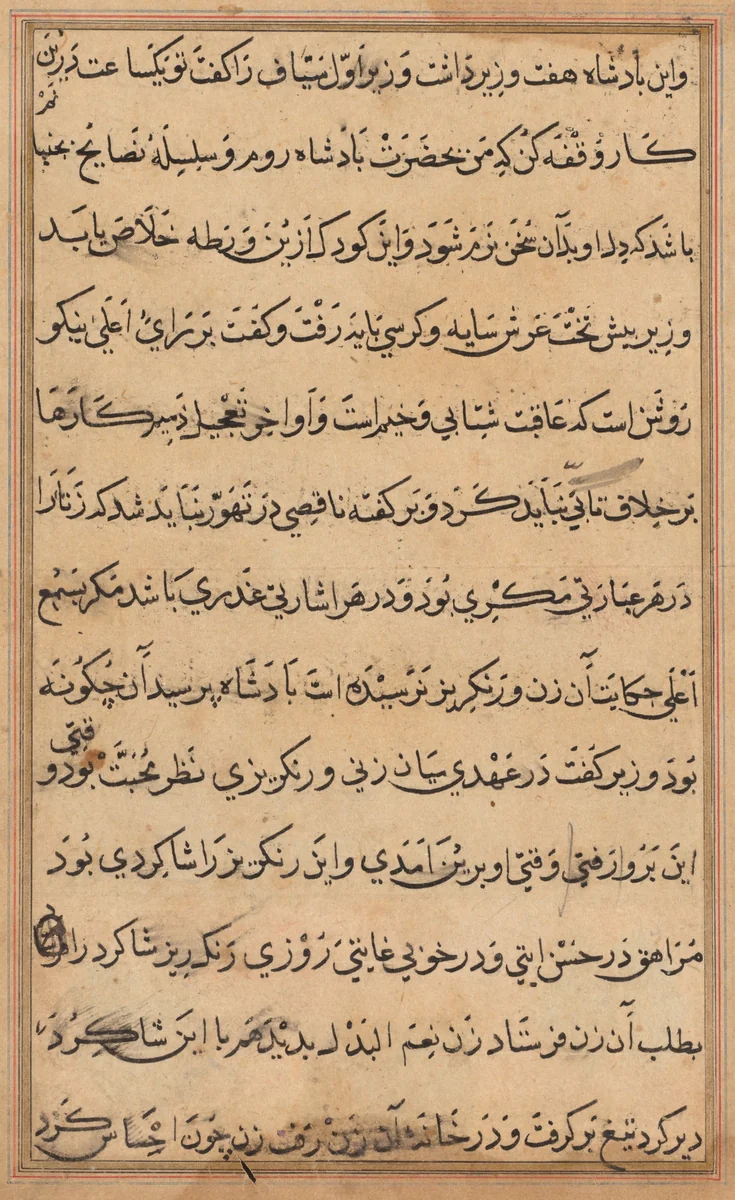 واین بادشاه هفت وزیر داشت وزیر اول سیّاف را کفت تو یکساعت درین
کار وقفه کن که من بحضرت بادشاه روم و سلسلهٔ نصایح بجنبانم
باشد که دل او بدان سخن نرم شود و این کودک ازین ورطه خلاص یابد
وزیر پیش تخت عرش سایه و کرسی بایه رفت و کفت بر رای اعلی نیکو
روشن است که عاقبت شتابی وخیم است و اواخر تعجیل ذمیم کارها
بر خلاف تانی نباید کرد و بر کفته ناقصی در تهوّر نباید شد که زنانرا
در هر عبارتی مکری بود و در هر اشارتی غدری باشد مکر بسمع
اعلی حکایت آن زن و رنکریز نرسیده است بادشاه پرسید آن چکونه
بود وزیر کفت در عهدی میان زنی و رنکریزی نظر محبت بود وقتی
این برو رفتی و وقتی او برین امدی و این رنکریز را شاکردی بود
مراهق در حسن ایتی و در خوبی غایتی روزی رنکریز شاکرد را
بطلب آن زن فرستاد زن نعم البدل بدید هم با این شاکرد
دیر کرد تیغ بر کرفت و در خانه آن زن رفت زن چون احساس کرد